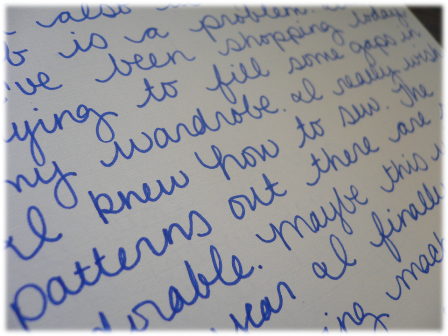 also
b is a problem.
've been shopping today
ying to fill some gaps in
my wardrobe. I really wish
I knew how to sew. The
patterns out there are
dorable. Maybe this
year I finally
ing mac